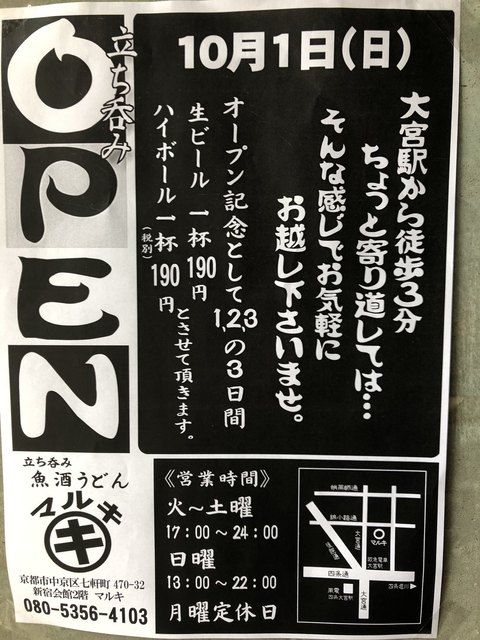 OPEN
立ち呑み
10月1日(日)
大宮駅から徒歩3分
ちょっと寄り道しては…
そんな感じでお気軽に
お越し下さいませ。
オープン記念として1,2,3の3日間
生ビール 一杯190円
ハイボール 一杯190円とさせて頂きます。
(税別)
立ち呑み
魚酒うどん
マルキ
キ
京都市中京区七軒町470-32
新宿会館2階 マルキ
080-5356-4103
《営業時間》
火〜土曜
17：00〜24：00
日曜
13：00〜22：00
月曜定休日
錦小路通
大宮通
マルキ
阪急電車
大宮駅
四条通
四条堀川
嵐電
四条大宮駅
大宮通